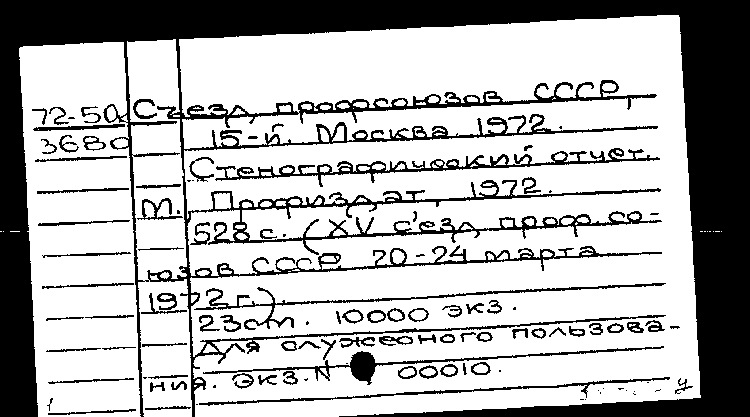 72-50 Съезд профсоюзов СССР,
3680 15-й. Москва. 1972.
Стенографический отчет.
М., Профиздат, 1972.
528 с. (XV съезд проф. со-
юзов СССР. 20-24 марта
1972 г.).
23 см. 10000 экз.
Для служебного пользова-
ния. Экз. N 00010.